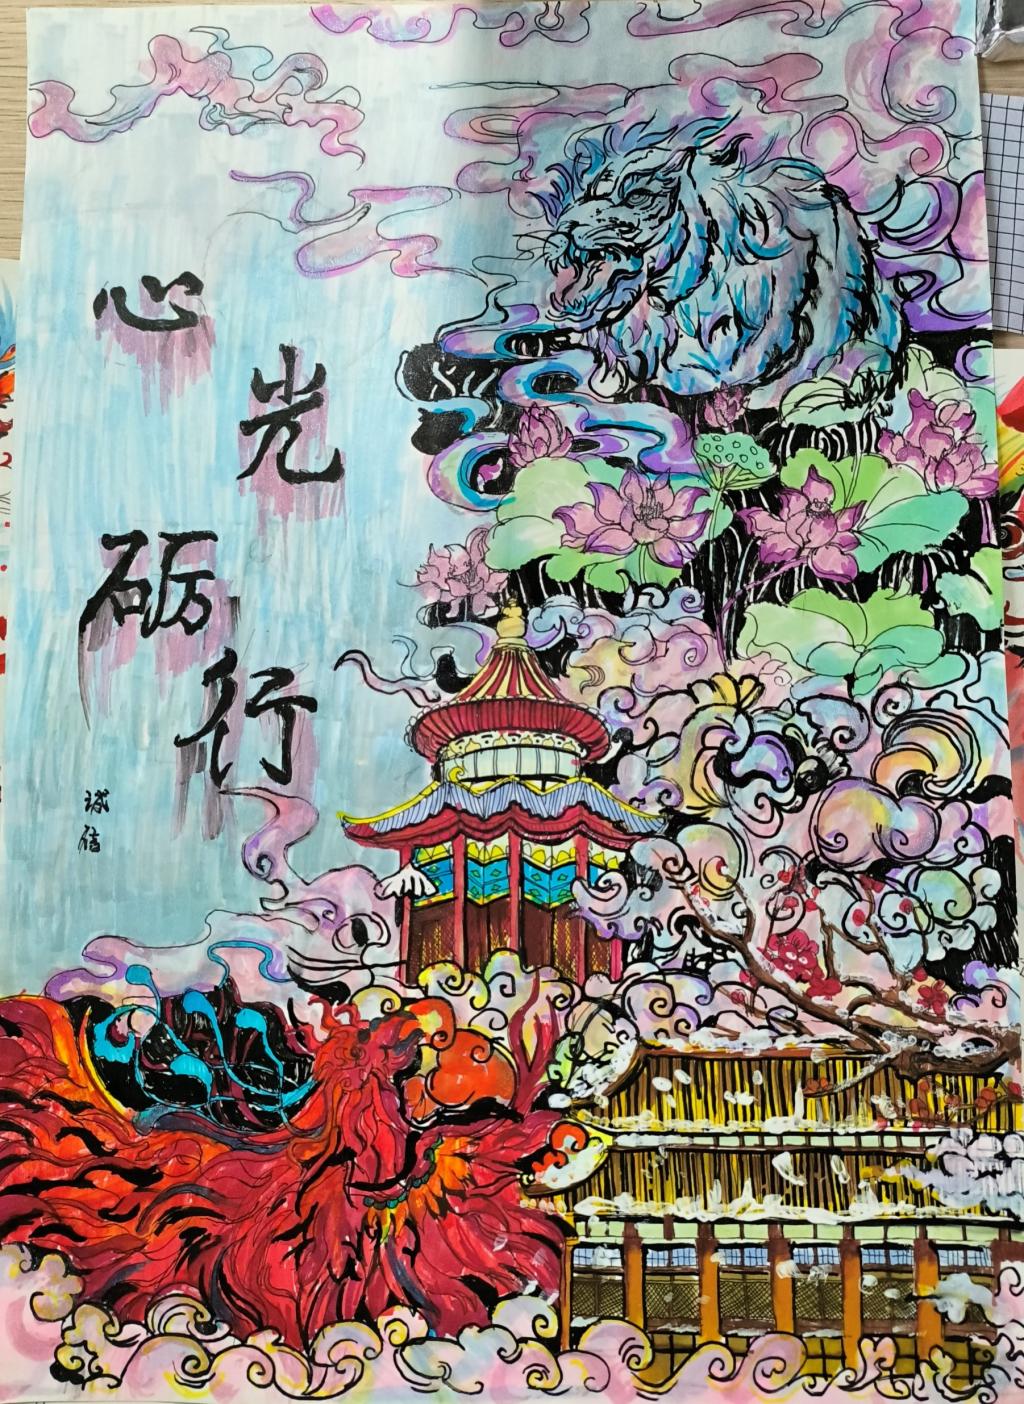 心光
砺行
诚信